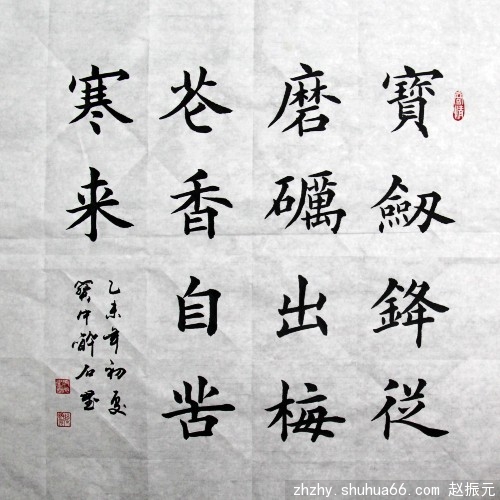 寶劔鋒從
磨礪出梅
花香自苦
寒来
乙未年初夏
中醉石
zhzhy.shuhua66.com 赵振元